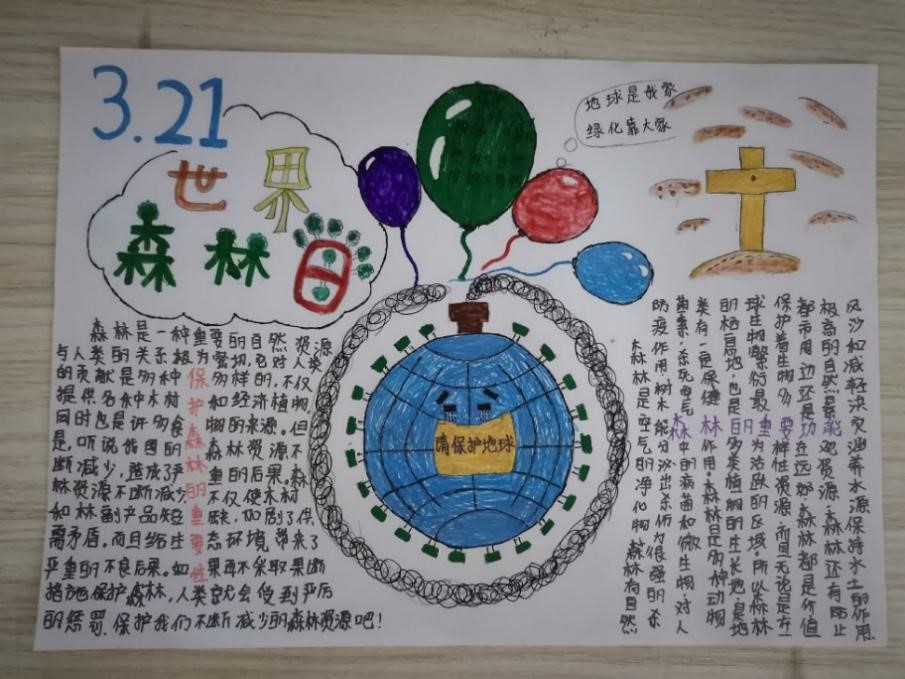 3.21
世界
森林日
地球是我家
绿化靠大家
请保护地球
保护森林的重要性
森林是一种重要的自然资源
与人类的关系极为密切,它对人类
的贡献是多种多样的,不仅
提供各种木材和经济植物,
同时也是许多食物的来源。但
是,听说我国的森林资源不
断减少,造成了严重的后果。森
林资源不断减少不仅使木材
和林副产品短缺,加剧了供
需矛盾,而且给生态环境带来了
严重的不良后果。如果再不采取果断
措施保护森林,人类就会受到严厉
的惩罚.保护我们不断减少的森林资源吧!
森林的重要功能
森林是空气的净化物,森林有自然
防疫作用,树木能分泌出杀伤力很强的杀
菌素,杀死空气中的病菌和微生物,对人
类有一定保健作用。森林是多种动物
的栖息地,也是多类植物的生长地,是地
球生物繁衍最为活跃的区域。所以森林
保护着生物多样性资源,而且无论是在
都市周边还是在远郊,森林都是价值
极高的自然景观资源,森林还有防止
风沙和减轻洪灾、涵养水源、保持水土的作用.